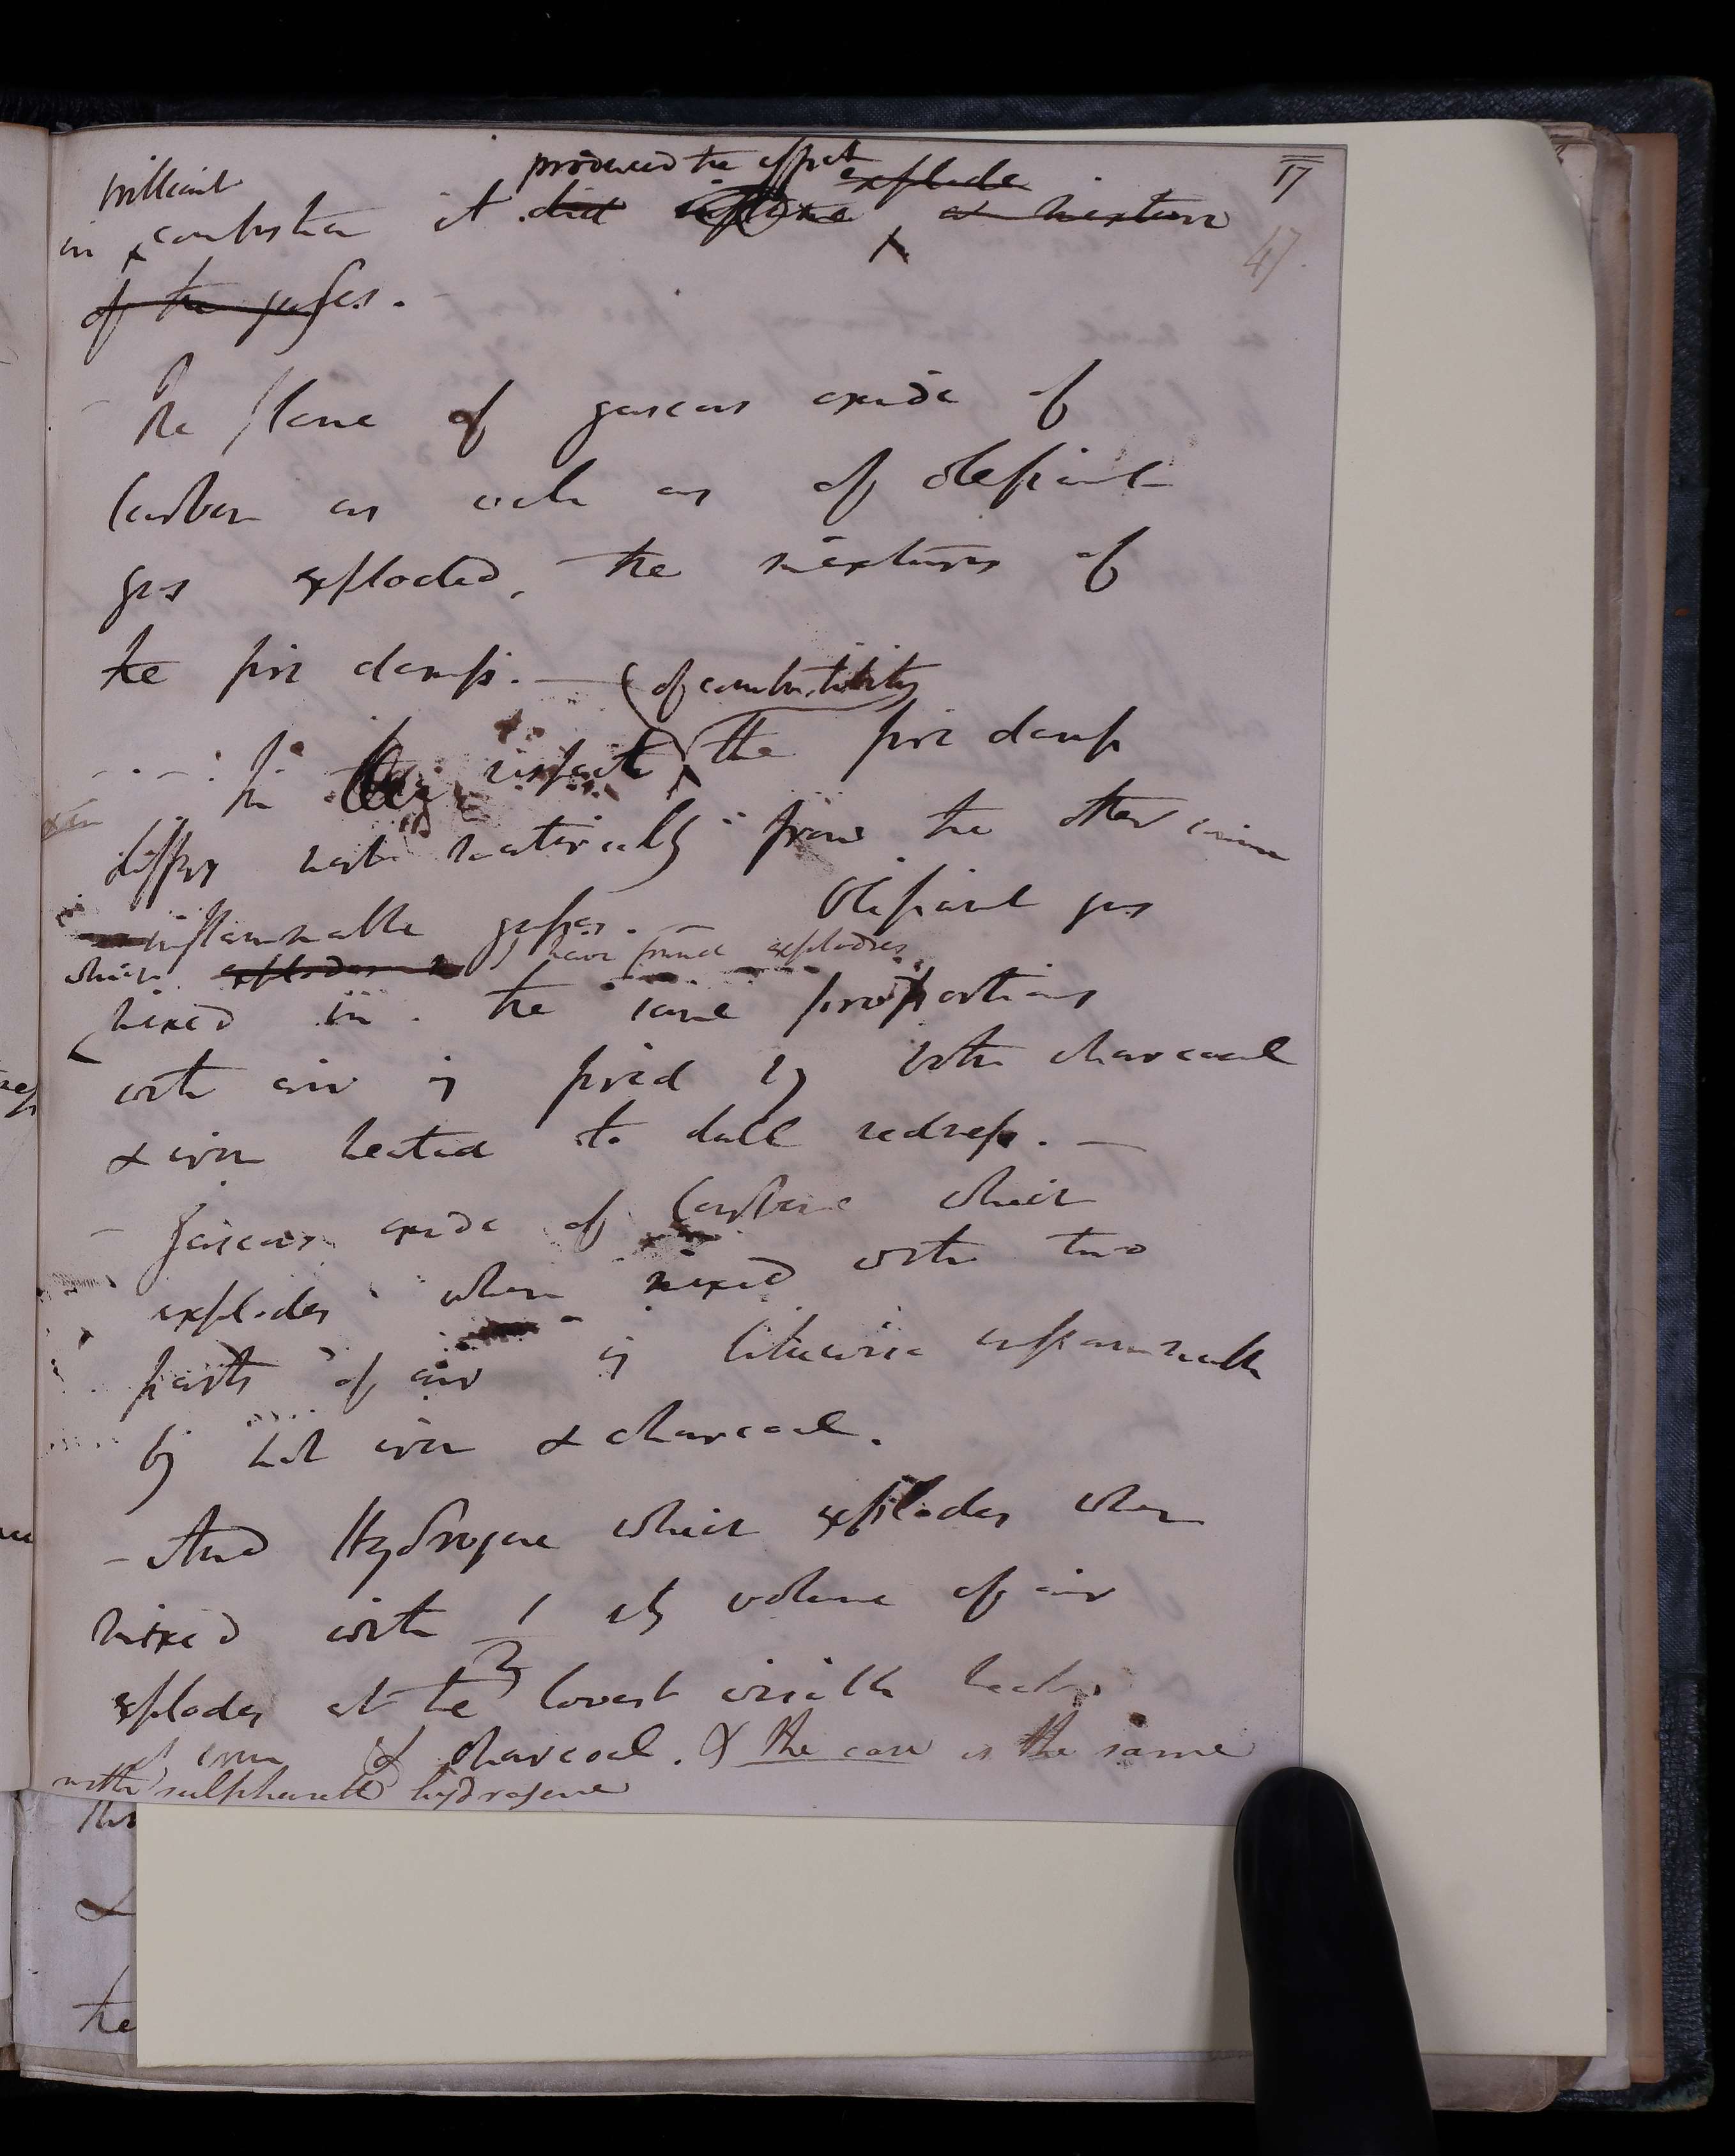 17
47.
brilliant produced the effect explode
in combustion it did inflame a mixture
of the gases.
The flame of gaseous oxide of
Carbon as well as of olefiant
gas exploded, the mixtures of
the fire damp. —
(of combustibility
In respect the fire damp
differs most materially from the other common
inflammable gases. — Olefiant gas
which explodes I have found explodes
mixed in the same proportions
with air is fired by both charcoal
& iron heated to dull redness. —
— Gaseous oxide of Carbone which
explodes when mixed with two
parts of air is likewise inflammable
by hot iron & charcoal.
— And Hydrogene which explodes when
mixed with
explodes at the lowest visible heat
of iron & charcoal. & the case is the same
with sulphuretted hydrogene
the